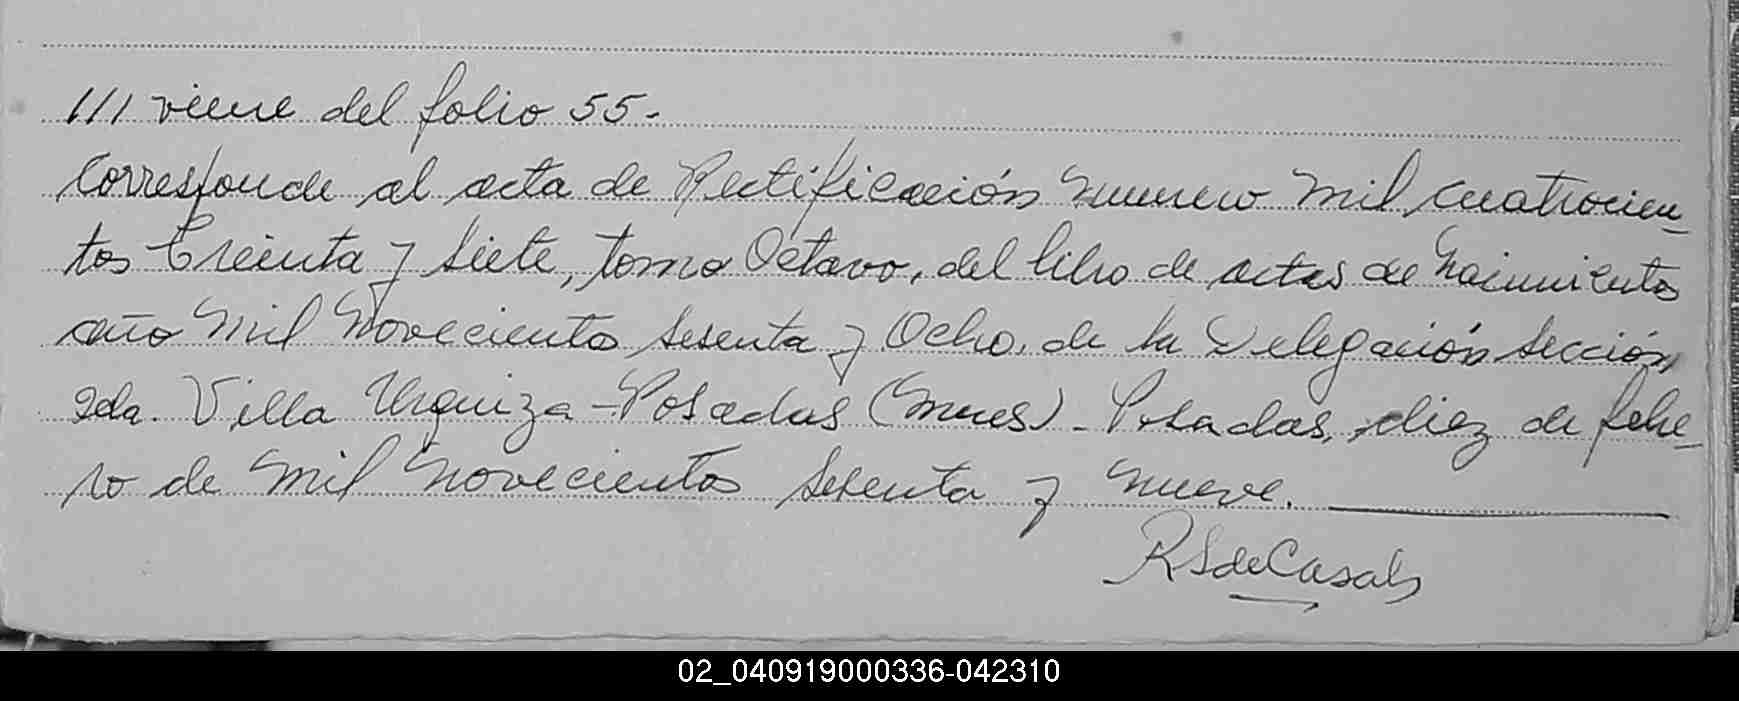 /// viene del folio 55.
Corresponde al acta de Rectificación numero mil cuatrocien_
tos treinta y siete, tomo Octavo, del libro de actas de Nacimientos
año mil Novecientos sesenta y Ocho, de la Delegación Sección
2da. Villa Urquiza - Posadas (Mnes) - Posadas, diez de febre_
ro de mil novecientos sesenta y nueve.
RSdeCasals
02_040919000336-042310